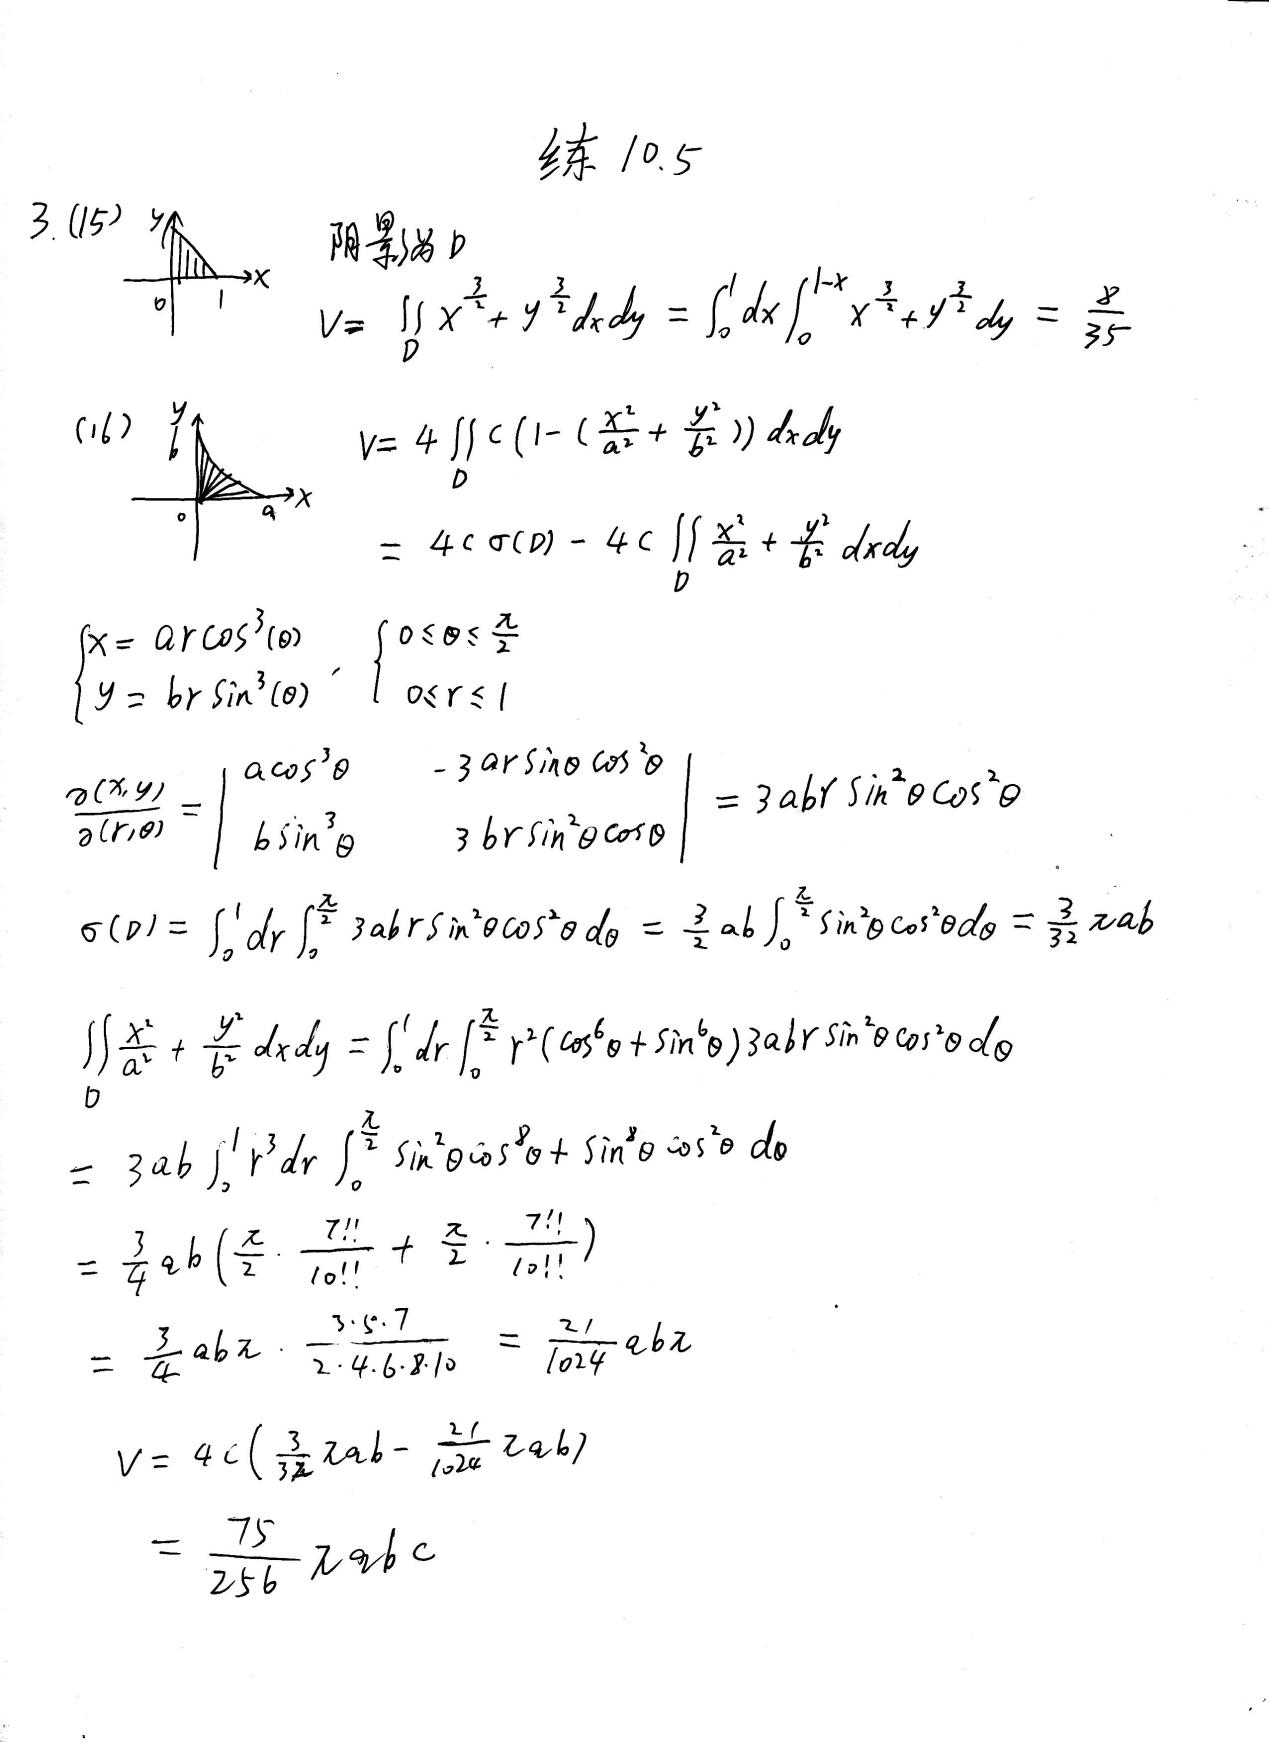 练 10.5
3.(15) y x 0 1 阴影为 D
V = ∬_D x^{3/2} + y^{3/2} dxdy = ∫_0^1 dx ∫_0^{1-x} x^{3/2} + y^{3/2} dy = 8/35
(16) y b 0 a x V = 4 ∬_D c(1 - (x²/a² + y²/b²)) dxdy
= 4cσ(D) - 4c ∬_D x²/a² + y²/b² dxdy
{ x = ar cos³(θ) , { 0 ≤ θ ≤ π/2
{ y = br sin³(θ) { 0 ≤ r ≤ 1
∂(x,y)/∂(r,θ) = | a cos³θ  -3ar sinθ cos²θ ; b sin³θ  3br sin²θ cosθ | = 3abr sin²θ cos²θ
σ(D) = ∫_0^1 dr ∫_0^{π/2} 3abr sin²θ cos²θ dθ = 3/2 ab ∫_0^{π/2} sin²θ cos²θ dθ = 3/32 πab
∬_D x²/a² + y²/b² dxdy = ∫_0^1 dr ∫_0^{π/2} r²(cos⁶θ + sin⁶θ) 3abr sin²θ cos²θ dθ
= 3ab ∫_0^1 r³ dr ∫_0^{π/2} sin²θ cos⁸θ + sin⁸θ cos²θ dθ
= 3/4 ab (π/2 · 7!!/10!! + π/2 · 7!!/10!!)
= 3/4 abπ · 3·5·7/2·4·6·8·10 = 21/1024 abπ
V = 4c(3/32 πab - 21/1024 πab)
= 75/256 πabc